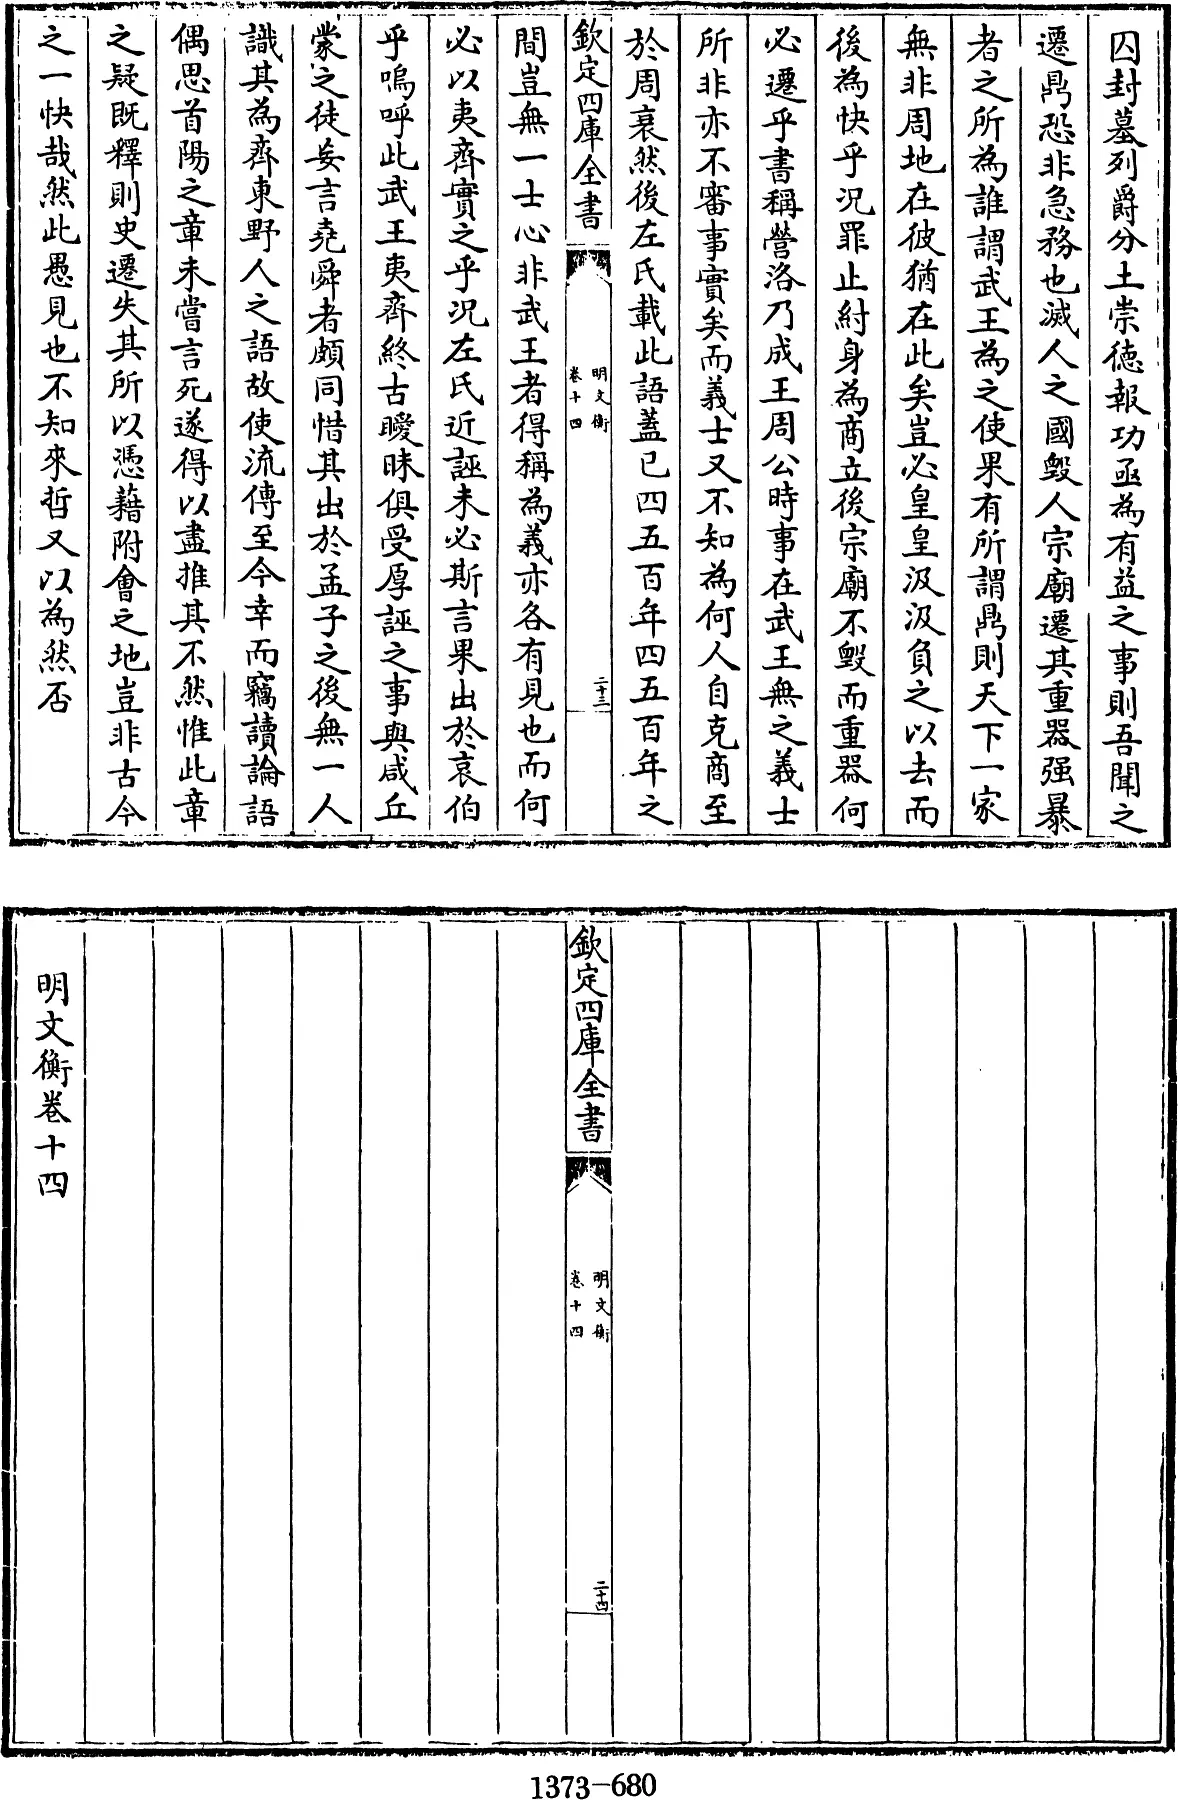 囚封墓列爵分土崇徳報功亟為有益之事則吾聞之
遷鼎恐非急務也滅人之國毀人宗廟遷其重器强暴
者之所為誰謂武王為之使果有所謂鼎則天下一家
無非周地在彼猶在此矣豈必皇皇汲汲負之以去而
後為快乎况罪止紂身為商立後宗廟不毀而重器何
必遷乎書稱營洛乃成王周公時事在武王無之義士
所非亦不審事實矣而義士又不知為何人自克商至
於周衰然後左氏載此語蓋已四五百年四五百年之
欽定四庫全書
明文衡
卷十四
二十三
間豈無一士心非武王者得稱為義亦各有見也而何
必以夷齊實之乎况左氏近誣未必斯言果出於哀伯
乎嗚呼此武王夷齊終古曖昧俱受厚誣之事與咸丘
蒙之徒妄言堯舜者頗同惜其出於孟子之後無一人
識其為齊東野人之語故使流傳至今幸而竊讀論語
偶思首陽之章未嘗言死遂得以盡推其不然惟此章
之疑既釋則史遷失其所以憑藉附會之地豈非古今
之一快哉然此愚見也不知來哲又以為然否
欽定四庫全書
明文衡
卷十四
二十四
明文衡卷十四
1373-680